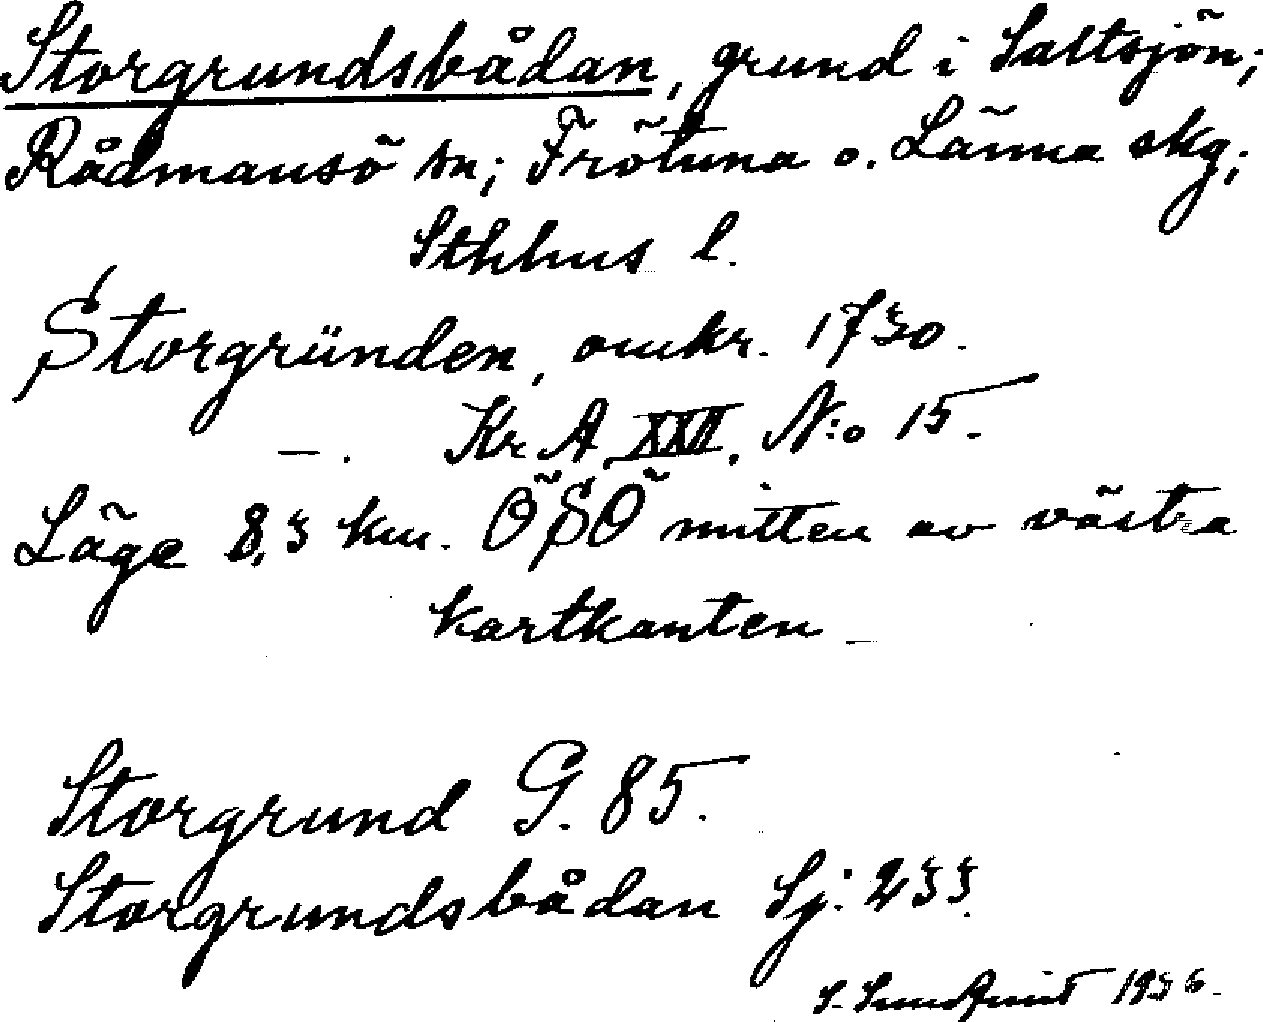 Storgrundsbådan, grund i Saltsjön;
Rådmansö sn; Frötuna o. Länna skg;
Sthlms l.
Storgründen, omkr. 1730.
—. Kr A, XXII, N:o 15.
Läge 8,3 km. ÖSÖ mitten av västra
kartkanten
Storgrund G. 85.
Storgrundsbådan Sj: 233.
S. Sundquist 1936.